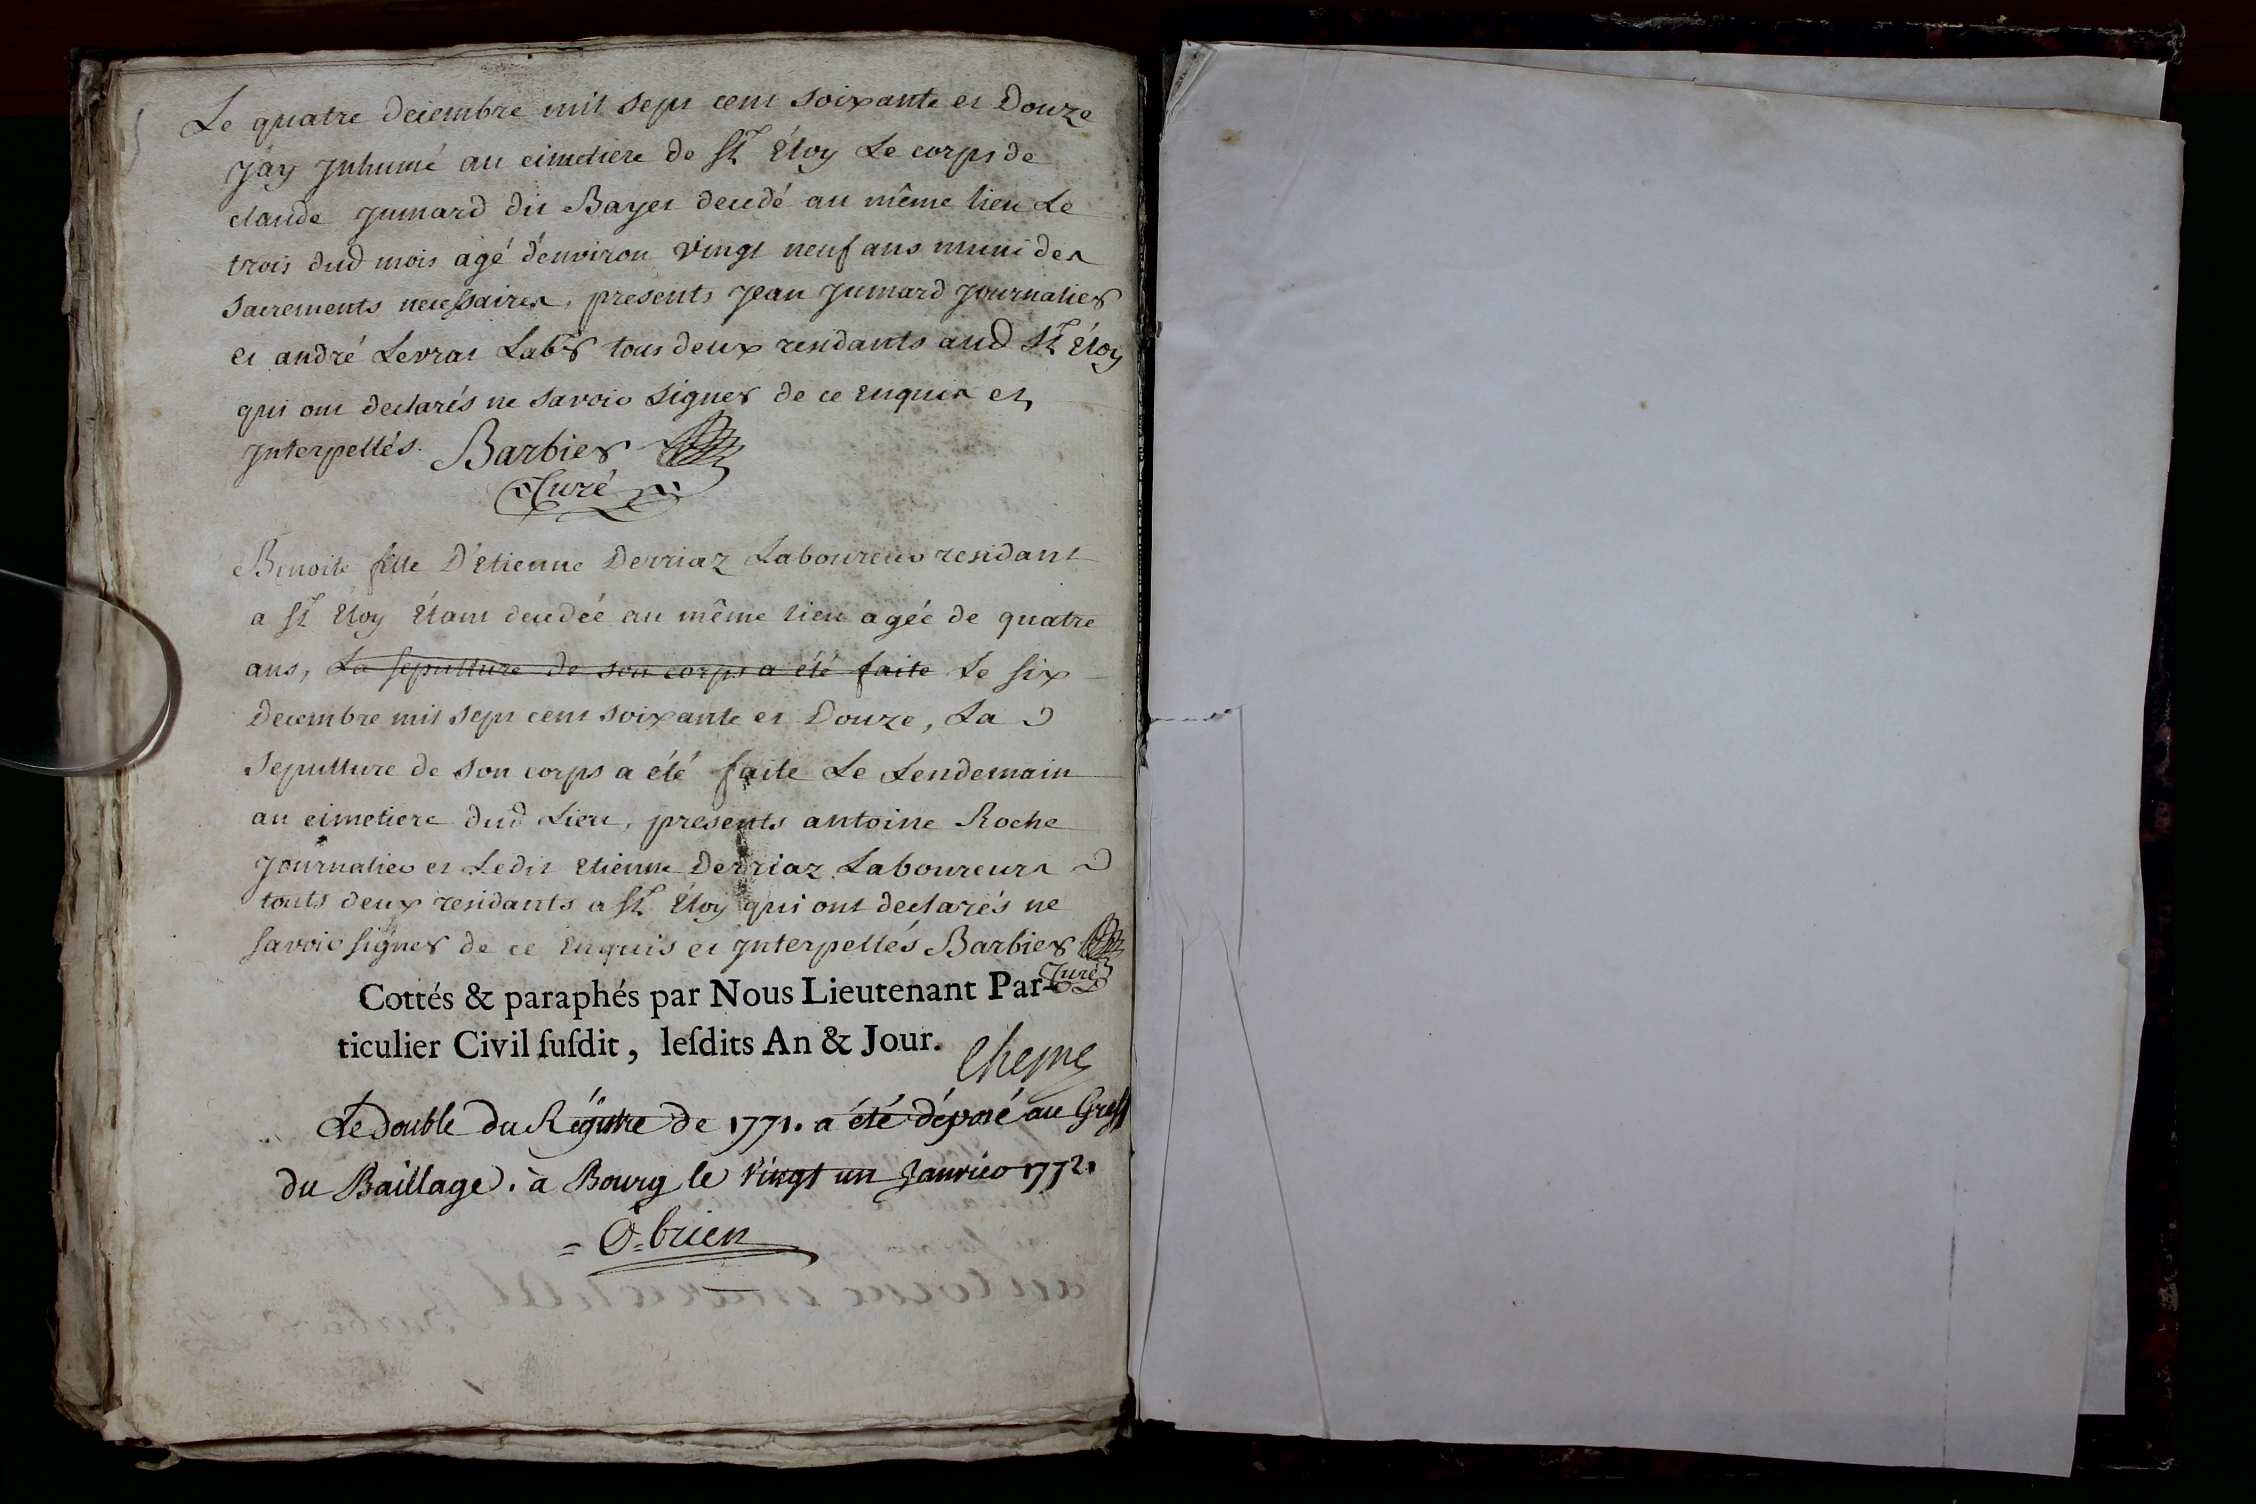 Le quatre decembre mil sept cent soixante et Douze
Jay Inhumé au cimetiere de St Éloy Le corps de
claude Jumard dit Bayet decedé au même lieu Le
trois dud mois agé d'environ vingt neuf ans muni des
sacrements necessaires, presents Jean Jumard Journalier
et andré Levrat Labr tous deux residants aud St Éloy
qui ont declarés ne savoir signer de ce enquis et
Interpellés. Barbier
Curé
Benoite fille D'Etienne Derriaz Laboureur residant
a St Éloy Etant decedée au même lieu agée de quatre
ans, La sepulture de son corps a été faite Le six
Decembre mil sept cent soixante et Douze, La
sepulture de son corps a été faite Le Lendemain
au cimetiere dud Lieu, presents antoine Roche
Journalier et Ledit Etienne Derriaz Laboureurs
touts deux residants a St Éloy qui ont declarés ne
savoir signer de ce Enquis et Interpellés Barbier
Curé
Cottés & paraphés par Nous Lieutenant Par-
ticulier Civil ſuſdit, leſdits An & Jour.
Le Double du Régistre de 1771. a été déposé au Greff
du Baillage. à Bourg le vingt un Janvier 1772.
= O=brien